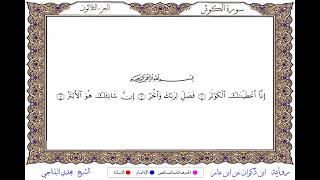 سورة الكوثر
الجزء الثلاثون
بسم الله الرحمن الرحيم
إِنَّا أَعْطَيْنَاكَ الْكَوْثَرَ ۝١ فَصَلِّ لِرَبِّكَ وَانْحَرْ ۝٢ إِنَّ شَانِئَكَ هُوَ الْأَبْتَرُ ۝٣
رواية ابن ذكوان عن ابن عامر
الشيخ مجدي البلتاجي